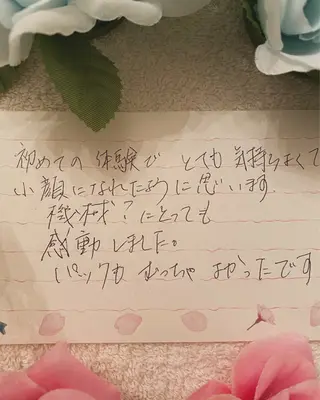 初めての体験で とても気持ちよくて
小顔になれたように思います.
機械?にとっても
感動しました。
パックもむっちゃよかったです